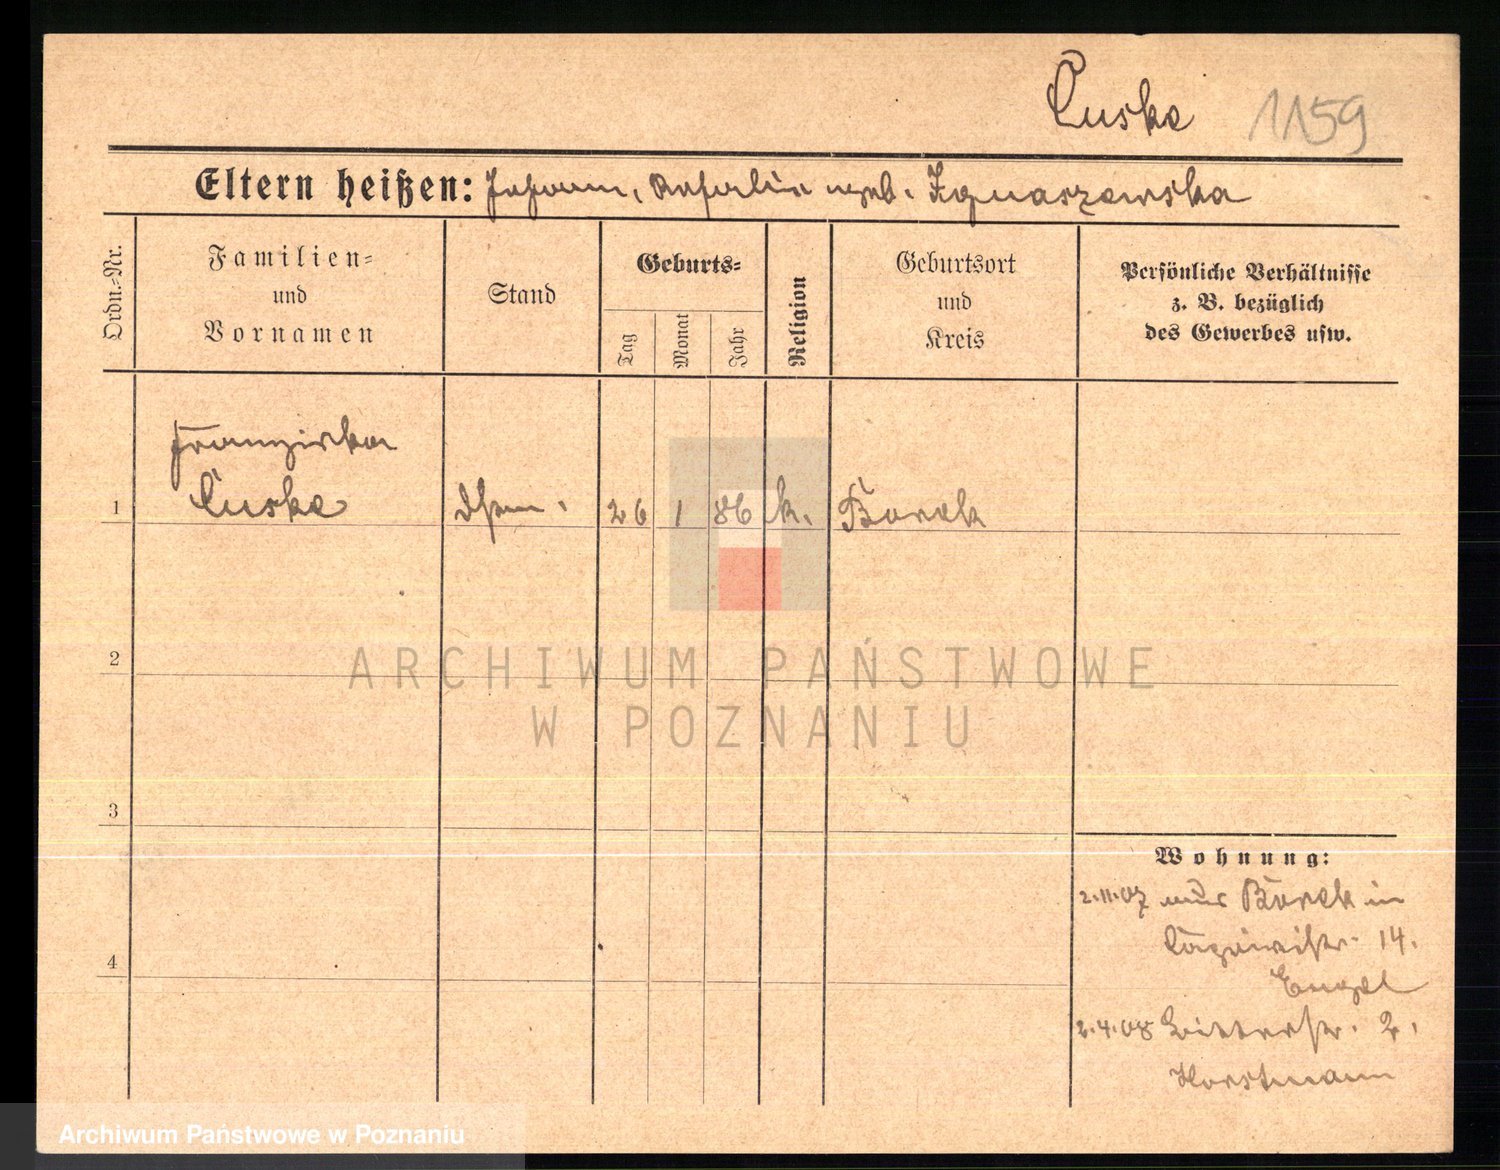 Cuske 1159
Eltern heißen: Johann, Katharina geb. Ignaszewska
Ordn.-Nr.
Familien-
und
Vornamen
Stand
Geburts-
Tag
Monat
Jahr
Religion
Geburtsort
und
Kreis
Persönliche Verhältnisse
z. B. bezüglich
des Gewerbes usw.
Franziska
1 Cuske 26 1 86 k. Borek
2
ARCHIWUM PAŃSTWOWE
W POZNANIU
3
Wohnung:
2.11.07 Borek in
14.
4
Engel
2.4.08 Ritterstr. 2.
Horstmann
Archiwum Państwowe w Poznaniu